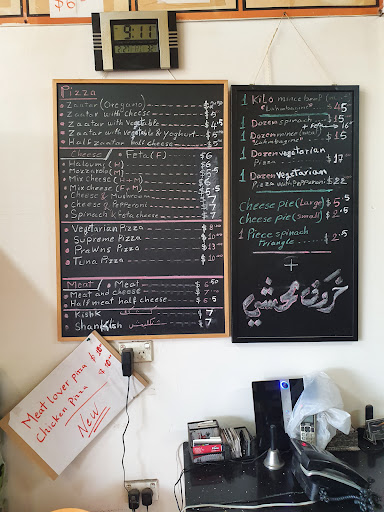 9:11
Pizza
Zaatar (Oregano) $2.50
Zaatar with cheese $5
Zaatar with Vegetable $4.5
Zaatar with vegetable & Yoghurt $5
Half Zaatar half cheese $5
Cheese / Feta (F) $6
Haloumi (H) $6
Mozzarola (M)
Mix cheese (H+M)
Mix cheese (F+M)
Cheese & Mushroom $7
Cheese & Pepperoni $7
Spinach & feta cheese $7
Vegetarian Pizza
Supreme Pizza
Prawns Pizza $13.00
Tuna Pizza
Meat / Meat $6.50
Meat and cheese $7
Half meat half cheese $6.5
Kishk $7
Shanklish شنكليش $7
1 Kilo mince beef $45
"Lahmbagine"
1 Dozen spinach $15
1 Dozen mince (meat) $16
"Lahmbagine"
1 Dozen vegetarian $17
Pizza
1 Dozen Vegetarian
Pizza with Pepperoni $22
Cheese pie (Large) $5.5
Cheese pie (Small) $2.5
1 Piece spinach
triangle $2.5
خروف محشي
Meat lover pizza
Chicken Pizza
New